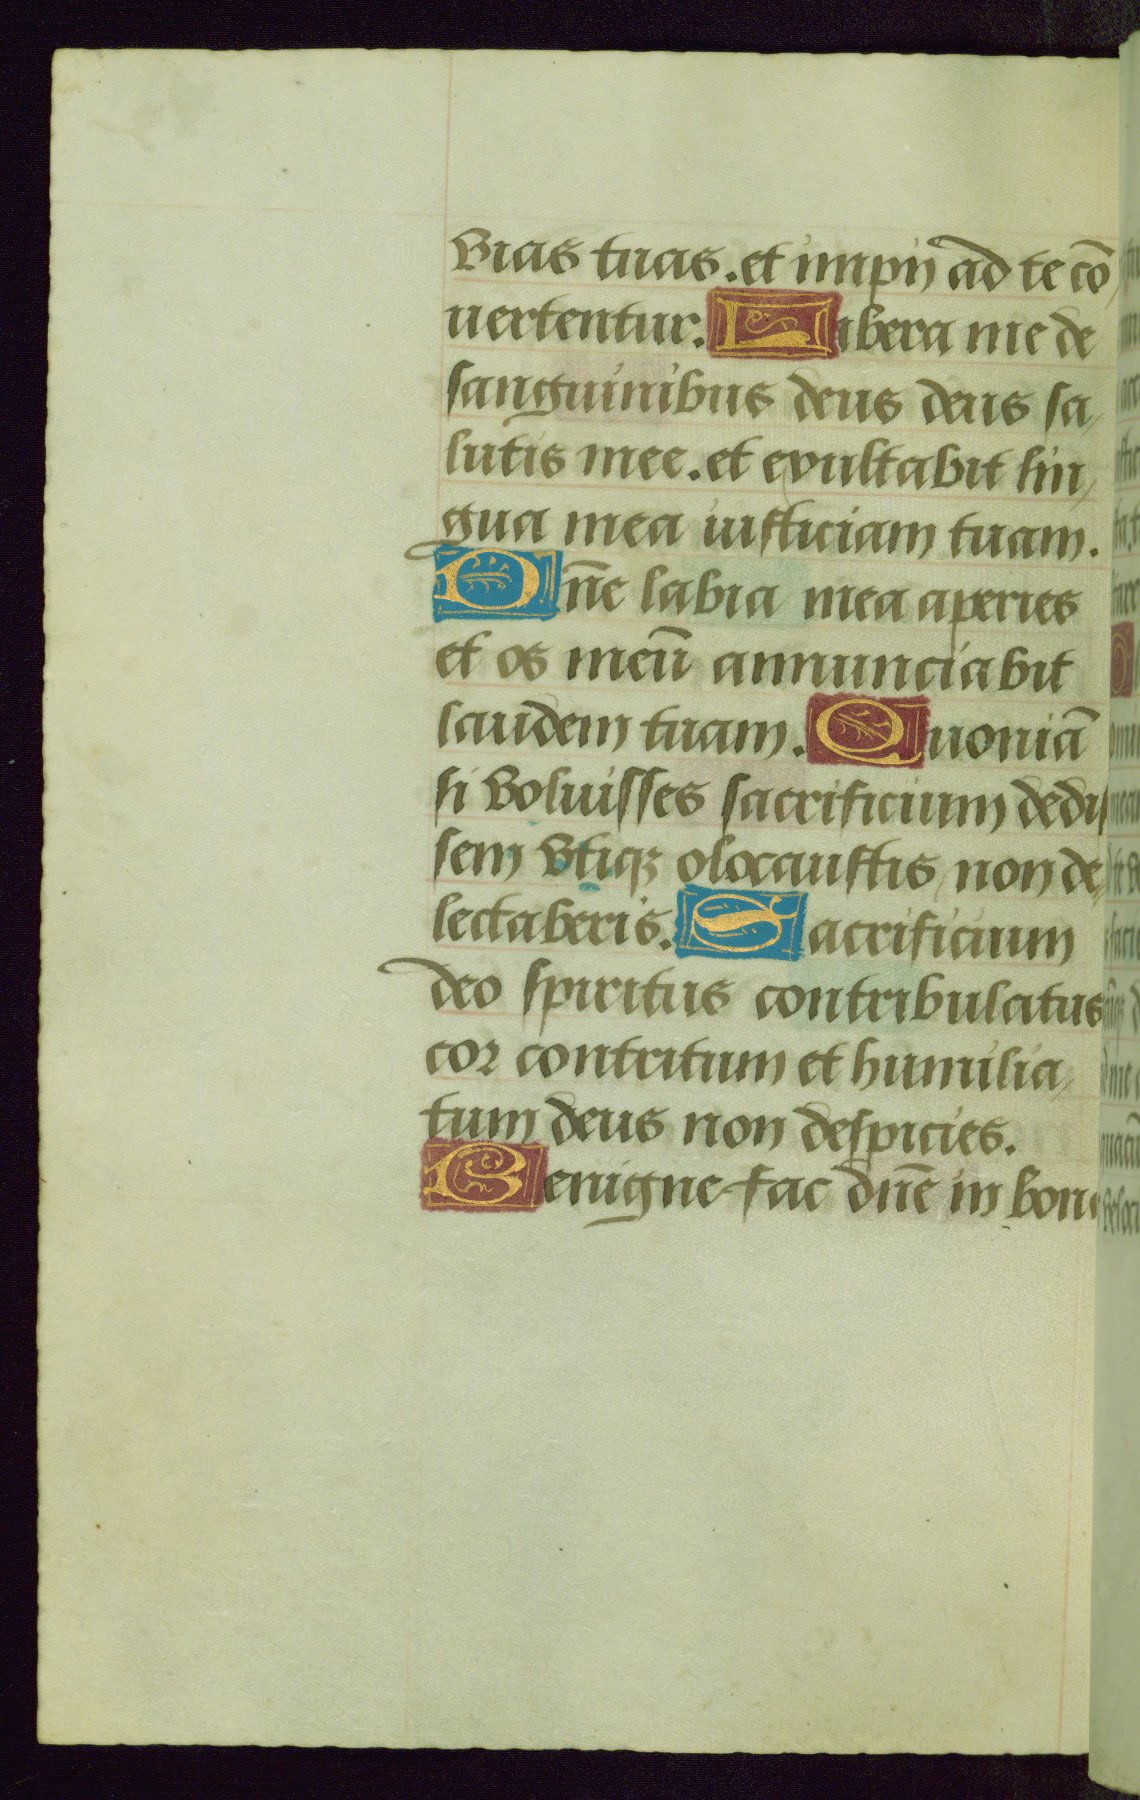 vias tuas. et impii ad te cō
uertentur. Libera me de
sanguinibus deus deus sa
lutis mee. et exultabit lin
gua mea iusticiam tuam.
Dn̄e labia mea aperies
et os meū annunciabit
laudem tuam. Quoniā
si voluisses sacrificium dedis
sem vtiqꝫ olocaustis non de
lectaberis. Sacrificium
deo spiritus contribulatus
cor contritum et humilia
tum deus non despicies.
Benigne fac dn̄e in bona